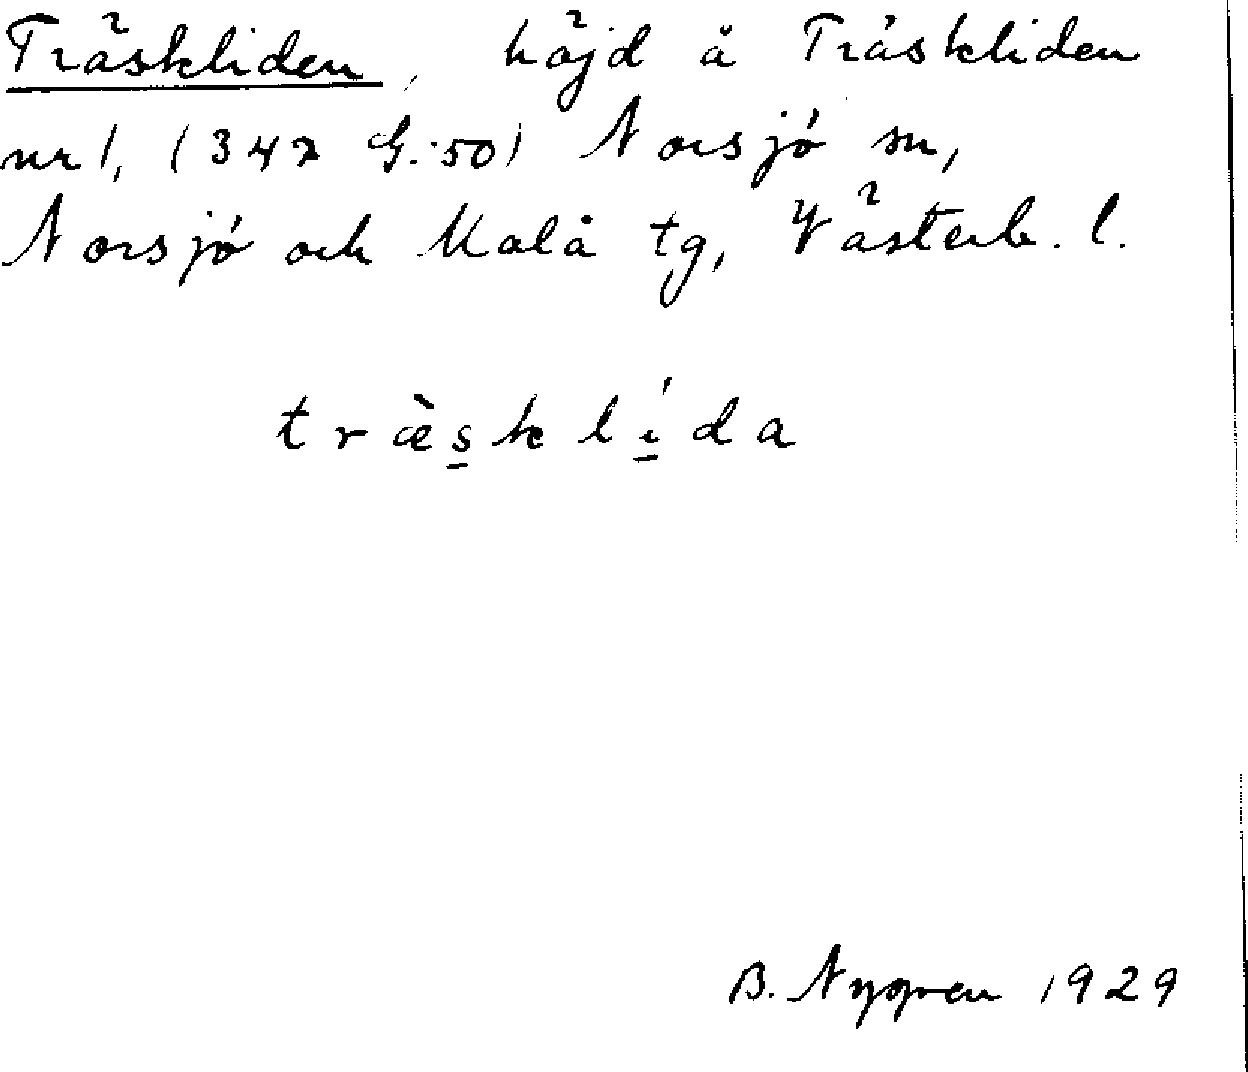 Träskliden, höjd å Träskliden
nr 1, (347 G:50) Norsjö sn,
Norsjö och Malå tg, Västerb. l.
træ̀sklída
B. Nygren 1929